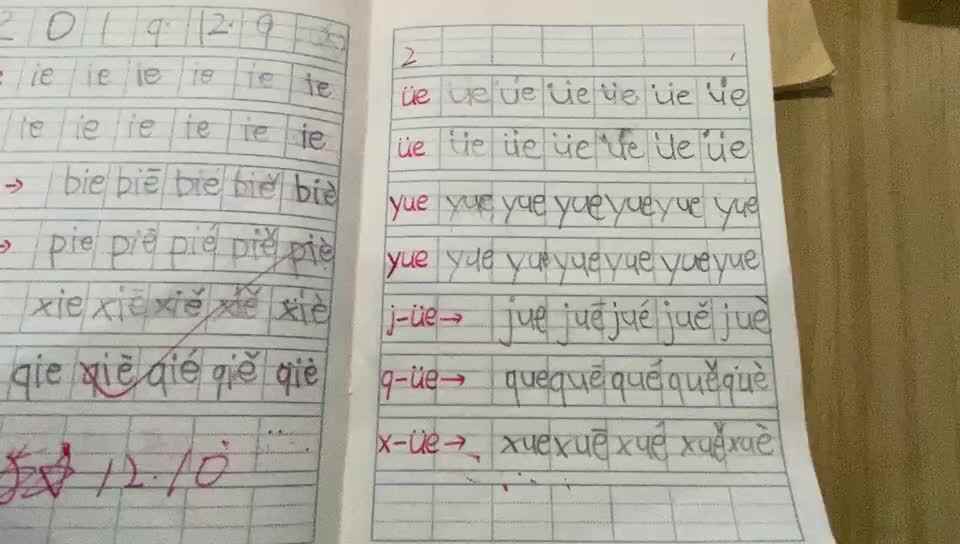 2019.12.9
ie ie ie ie ie ie
ie ie ie ie ie ie
→ bie biē bié biě biè
→ pie piē pié piě piè
xie xiē xiě xiě xiè
qie qiē qié qiě qiè
12.10
2
üe üe üe üe üe üe üe
üe üe üe üe üe üe üe
yue yue yue yue yue yue yue
yue yue yue yue yue yue yue
j-üe→ jue juē jué juě juè
q-üe→ que quē qué quě què
x-üe→ xue xuē xué xuě xuè